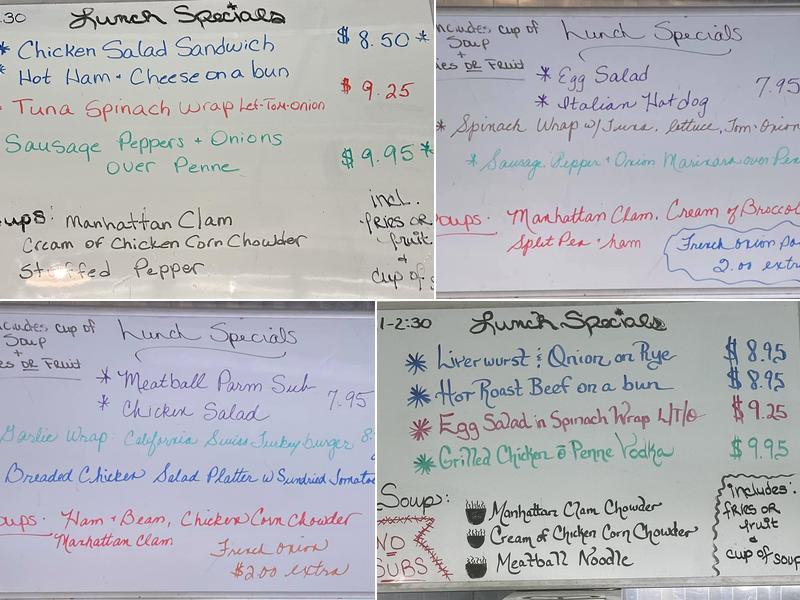 :30 Lunch Specials
* Chicken Salad Sandwich $ 8.50 *
* Hot Ham + Cheese on a bun
Tuna Spinach Wrap Let-Tom-onion $ 9.25
Sausage Peppers + Onions $ 9.95 *
over Penne
ups: Manhattan Clam
Cream of Chicken Corn Chowder
Stuffed Pepper
incl.
fries OR
fruit
+
cup of s
ncludes cup of
Soup
+
ies OR Fruit
Lunch Specials
* Egg Salad 7.95
* Italian Hotdog
* Spinach Wrap w/Tuna, lettuce, Tom-Onion
* Sausage, Pepper + Onion Marinara over Pen
oups: Manhattan Clam, Cream of Broccol
Split Pea + ham
French onion
2.00 extra
ncludes cup of
Soup
+
es OR Fruit
Lunch Specials
* Meatball Parm Sub 7.95
* Chicken Salad
Garlic Wrap: California Swiss Turkey burger 8.
Breaded Chicken Salad Platter w Sundried Tomato
oups: Ham + Bean, Chicken Corn Chowder
Manhattan Clam
French Onion
$2.00 extra
1-2:30 Lunch Specials
* Liverwurst & Onion on Rye $ 8.95
* Hot Roast Beef on a bun $ 8.95
* Egg Salad in Spinach Wrap L/T/O $ 9.25
* Grilled Chicken c̄ Penne Vodka $ 9.95
Soup:
NO
SUBS
Manhattan Clam Chowder
Cream of Chicken Corn Chowder
Meatball Noodle
includes:
fries OR
fruit
+
cup of soup